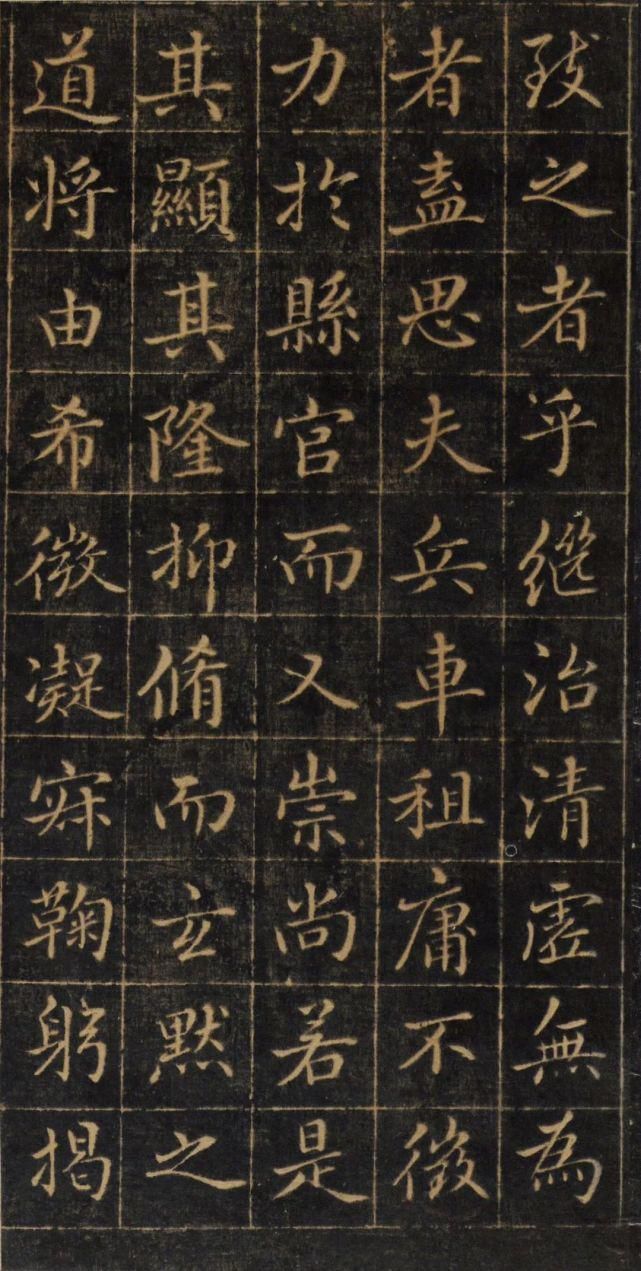 致之者乎繼治清虛無為
者盍思夫兵車租庸不徵
力於縣官而又崇尚若是
其顯其隆抑脩而玄默之
道将由希微凝寂鞠躬揭